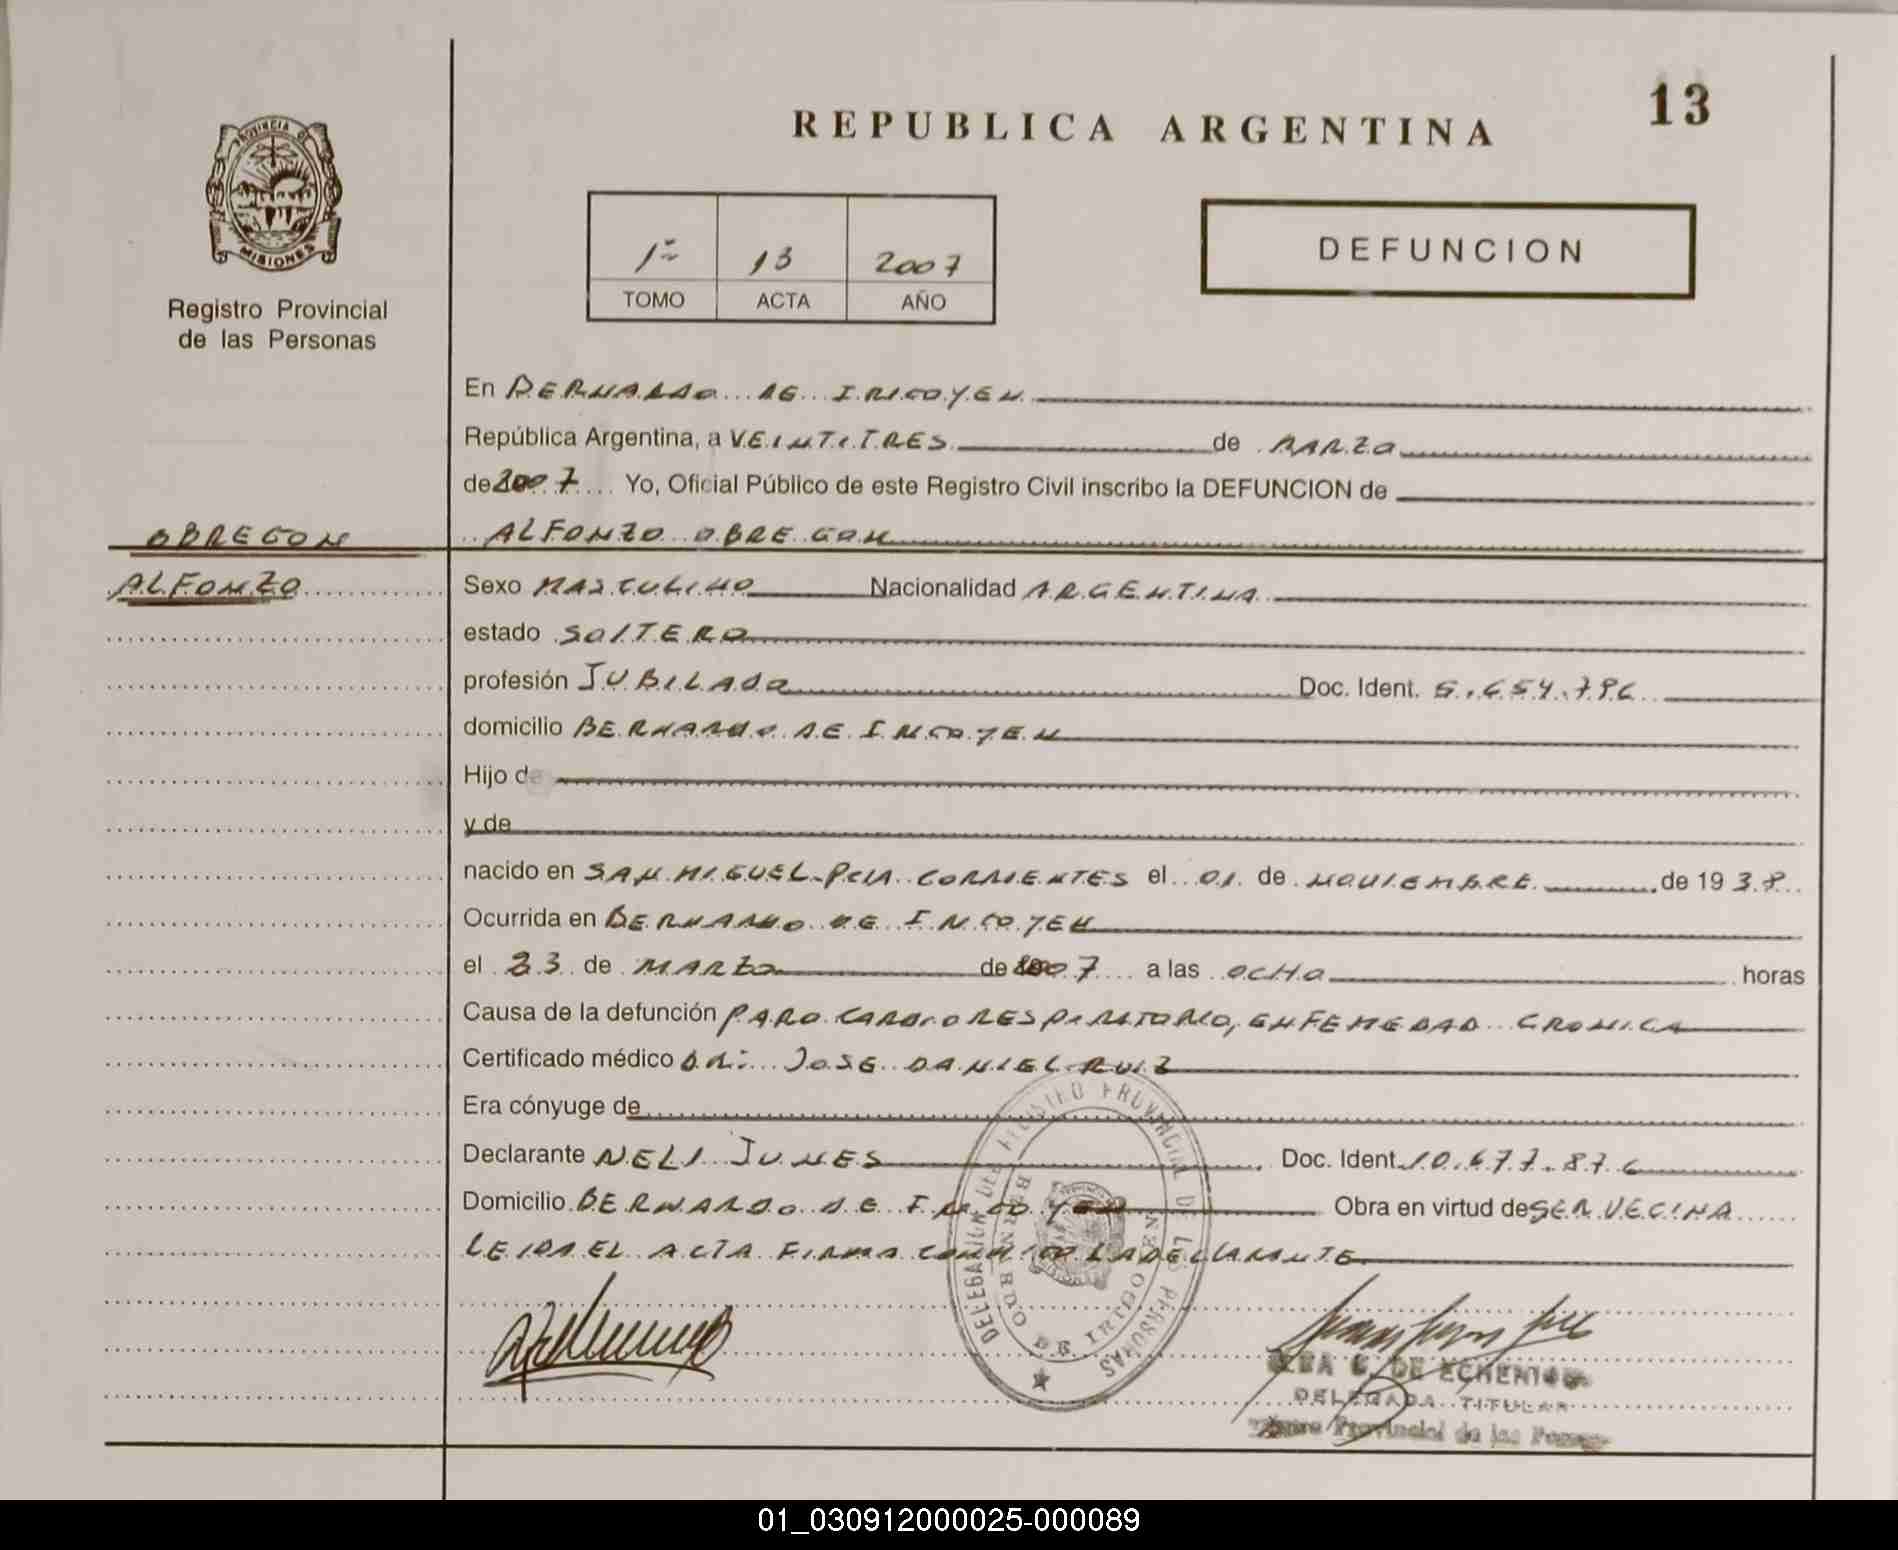 13
REPUBLICA ARGENTINA
PROVINCIA DE
MISIONES
Registro Provincial
de las Personas
1º 13 2007
TOMO ACTA AÑO
DEFUNCION
En BERNARDO DE IRIGOYEN
República Argentina, a VEINTITRES de MARZO
de 2007 Yo, Oficial Público de este Registro Civil inscribo la DEFUNCION de
OBREGON
ALFONZO
ALFONZO OBREGON
Sexo MASCULINO Nacionalidad ARGENTINA
estado SOLTERO
profesión JUBILADO Doc. Ident. 5.654.796
domicilio BERNARDO DE IRIGOYEN
Hijo de
y de
nacido en SAN MIGUEL-PCIA CORRIENTES el 01 de NOVIEMBRE de 1938
Ocurrida en BERNARDO DE IRIGOYEN
el 23 de MARZO de 2007 a las OCHO horas
Causa de la defunción PARO CARDIORESPIRATORIO, ENFEMEDAD CRONICA
Certificado médico DR: JOSE DANIEL RUIZ
Era cónyuge de
Declarante NELI JUNES Doc. Ident. 10.677.876
Domicilio BERNARDO DE IRIGOYEN Obra en virtud de SER VECINA
LEIDA EL ACTA FIRMA CONMIGO LA DECLARANTE
DELEGACION DEL REGISTRO PROVINCIAL DE LAS PERSONAS
BERNARDO DE IRIGOYEN
DE ECHENI
DELEGADA TITULAR
Provincial de las
01_030912000025-000089